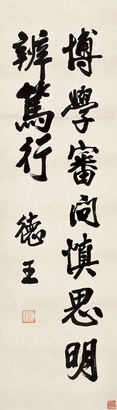 博學審問慎思明
辨篤行
德王